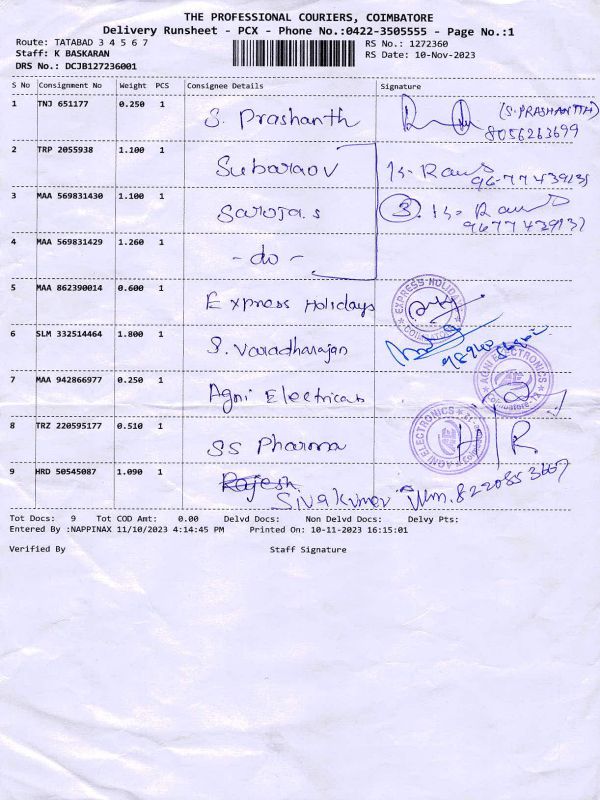 THE PROFESSIONAL COURIERS, COIMBATORE
Delivery Runsheet - PCX - Phone No.:0422-3505555 - Page No.:1
Route: TATABAD 3 4 5 6 7
RS No.: 1272360
Staff: K BASKARAN
RS Date: 10-Nov-2023
DRS No.: DCJB127236001
S No Consignment No Weight PCS Consignee Details Signature
1 TNJ 651177 0.250 1 S. Prashanth (S. PRASHANTTH)
8056263699
2 TRP 2055938 1.100 1 Subaraov
3 MAA 569831430 1.100 1 Saroja.s 3.
4 MAA 569831429 1.260 1 - do -
5 MAA 862390014 0.600 1 Express Holidays EXPRESS HOLIDAY
6 SLM 332514464 1.800 1 S. Varadharajan
7 MAA 942866977 0.250 1 Agni Electricals AGNI ELECTRONICS
8 TRZ 220595177 0.510 1 SS Pharma AGNI ELECTRONICS
9 HRD 50545087 1.090 1 Rajesh
Sivakumar
Tot Docs: 9 Tot COD Amt: 0.00 Delvd Docs: Non Delvd Docs: Delvy Pts:
Entered By :NAPPINAX 11/10/2023 4:14:45 PM Printed On: 10-11-2023 16:15:01
Verified By Staff Signature